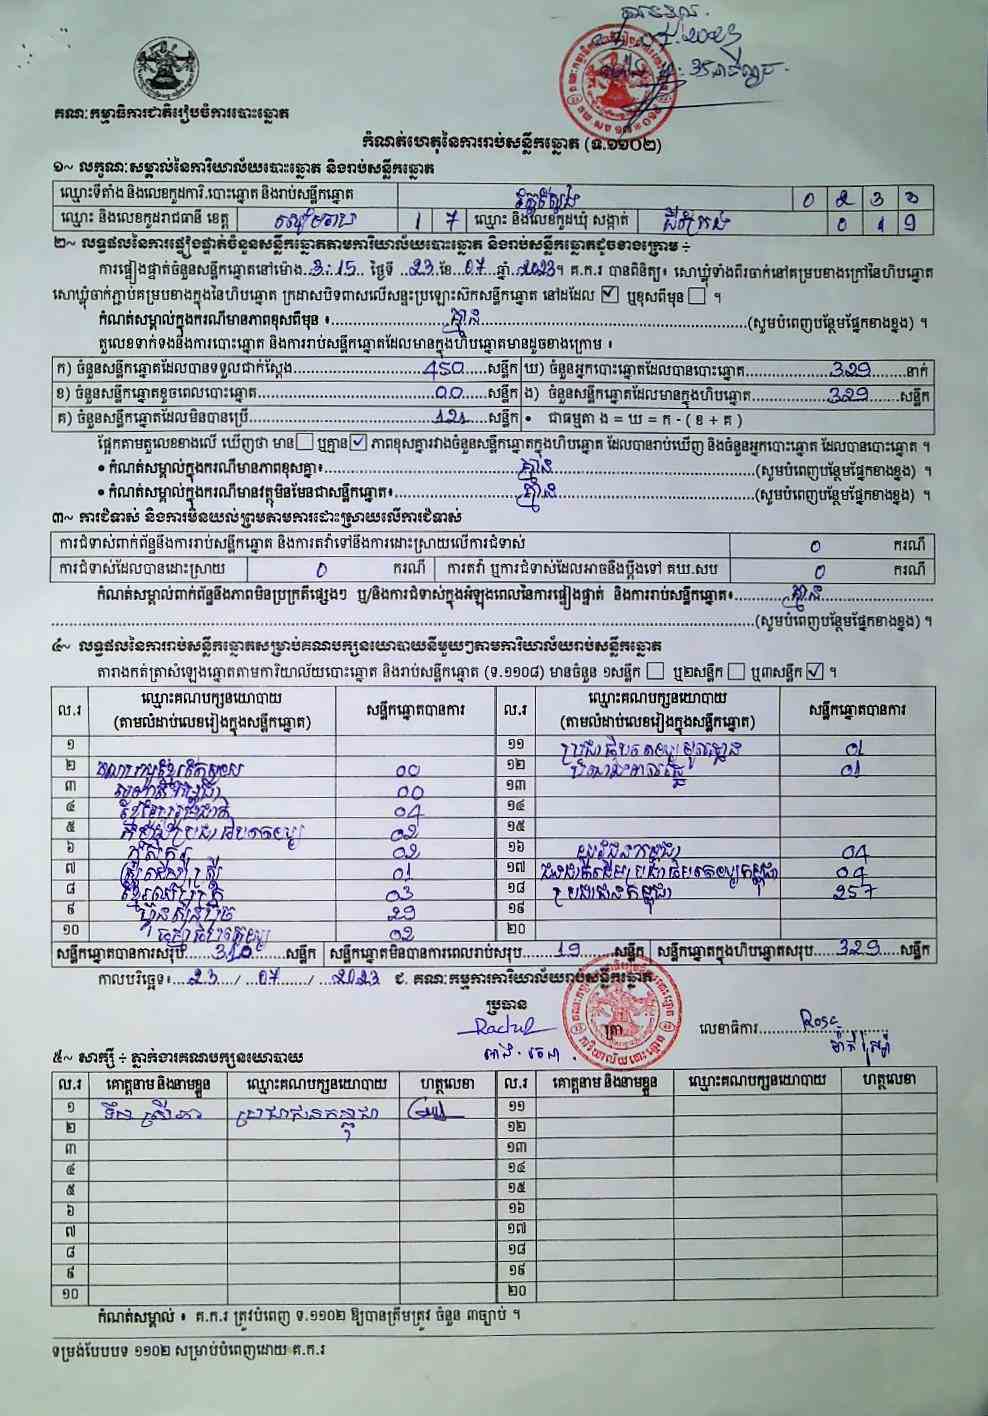 គណៈកម្មាធិការជាតិរៀបចំការបោះឆ្នោត
កំណត់ហេតុនៃការរាប់សន្លឹកឆ្នោត (ទ.១១០២)
១~ លក្ខណៈសម្គាល់នៃការិយាល័យបោះឆ្នោត និងរាប់សន្លឹកឆ្នោត
ឈ្មោះទីតាំង និងលេខកូដការិ.បោះឆ្នោត និងរាប់សន្លឹកឆ្នោត 0 2 3 3
ឈ្មោះ និងលេខកូដរាជធានី ខេត្ត សៀមរាប 1 7 ឈ្មោះ និងលេខកូដឃុំ សង្កាត់ ជីក្រែង 0 1 9
២~ លទ្ធផលនៃការផ្ទៀងផ្ទាត់ចំនួនសន្លឹកឆ្នោតតាមការិយាល័យបោះឆ្នោត និងរាប់សន្លឹកឆ្នោតដូចខាងក្រោម ÷
ការផ្ទៀងផ្ទាត់ចំនួនសន្លឹកឆ្នោតនៅម៉ោង 3:15 ថ្ងៃទី 23 ខែ 07 ឆ្នាំ 2023។ គ.ក.រ បានពិនិត្យ៖ សោឃ្លុំទាំងពីរចាក់នៅគម្របខាងក្រៅនៃហិបឆ្នោត
សោឃ្លុំចាក់ភ្ជាប់គម្របខាងក្នុងនៃហិបឆ្នោត ក្រដាសបិទពាសលើសន្ទះប្រឡោះស៊កសន្លឹកឆ្នោត នៅដដែល ☑ ឬខុសពីមុន ☐ ។
កំណត់សម្គាល់ក្នុងករណីមានភាពខុសពីមុន ៖ គ្មាន (សូមបំពេញបន្ថែមផ្នែកខាងខ្នង) ។
តួលេខទាក់ទងនឹងការបោះឆ្នោត និងការរាប់សន្លឹកឆ្នោតដែលមានក្នុងហិបឆ្នោតមានដូចខាងក្រោម ៖
ក) ចំនួនសន្លឹកឆ្នោតដែលបានទទួលជាក់ស្តែង 450 សន្លឹក ឃ) ចំនួនអ្នកបោះឆ្នោតដែលបានបោះឆ្នោត 329 នាក់
ខ) ចំនួនសន្លឹកឆ្នោតខូចពេលបោះឆ្នោត 00 សន្លឹក ង) ចំនួនសន្លឹកឆ្នោតដែលមានក្នុងហិបឆ្នោត 329 សន្លឹក
គ) ចំនួនសន្លឹកឆ្នោតដែលមិនបានប្រើ 121 សន្លឹក • ជាធម្មតា ង = ឃ = ក - ( ខ + គ )
ផ្អែកតាមតួលេខខាងលើ ឃើញថា មាន ☐ ឬគ្មាន ☑ ភាពខុសគ្នារវាងចំនួនសន្លឹកឆ្នោតក្នុងហិបឆ្នោត ដែលបានរាប់ឃើញ និងចំនួនអ្នកបោះឆ្នោត ដែលបានបោះឆ្នោត ។
• កំណត់សម្គាល់ក្នុងករណីមានភាពខុសគ្នា៖ គ្មាន (សូមបំពេញបន្ថែមផ្នែកខាងខ្នង) ។
• កំណត់សម្គាល់ក្នុងករណីមានវត្ថុមិនមែនជាសន្លឹកឆ្នោត៖ គ្មាន (សូមបំពេញបន្ថែមផ្នែកខាងខ្នង) ។
៣~ ការជំទាស់ និងការមិនយល់ព្រមតាមការដោះស្រាយលើការជំទាស់
ការជំទាស់ពាក់ព័ន្ធនឹងការរាប់សន្លឹកឆ្នោត និងការតវ៉ាទៅនឹងការដោះស្រាយលើការជំទាស់ 0 ករណី
ការជំទាស់ដែលបានដោះស្រាយ 0 ករណី ការតវ៉ា ឬការជំទាស់ដែលអាចនឹងប្តឹងទៅ គឃ.សប 0 ករណី
កំណត់សម្គាល់ពាក់ព័ន្ធនឹងភាពមិនប្រក្រតីផ្សេងៗ ឬ/និងការជំទាស់ក្នុងអំឡុងពេលនៃការផ្ទៀងផ្ទាត់ និងការរាប់សន្លឹកឆ្នោត៖ គ្មាន
(សូមបំពេញបន្ថែមផ្នែកខាងខ្នង) ។
៤~ លទ្ធផលនៃការរាប់សន្លឹកឆ្នោតសម្រាប់គណបក្សនយោបាយនីមួយៗតាមការិយាល័យរាប់សន្លឹកឆ្នោត
តារាងកត់ត្រាសំឡេងឆ្នោតតាមការិយាល័យបោះឆ្នោត និងរាប់សន្លឹកឆ្នោត (ទ.១១០៨) មានចំនួន ១សន្លឹក ☐ ឬ២សន្លឹក ☐ ឬ៣សន្លឹក ☑ ។
ល.រ ឈ្មោះគណបក្សនយោបាយ (តាមលំដាប់លេខរៀងក្នុងសន្លឹកឆ្នោត) សន្លឹកឆ្នោតបានការ ល.រ ឈ្មោះគណបក្សនយោបាយ (តាមលំដាប់លេខរៀងក្នុងសន្លឹកឆ្នោត) សន្លឹកឆ្នោតបានការ
១ ១១ 01
២ 00 ១២ 01
៣ 00 ១៣
៤ 04 ១៤
៥ 02 ១៥
៦ 02 ១៦ 04
៧ 01 ១៧ 04
៨ 03 ១៨ ប្រជាជនកម្ពុជា 257
៩ ហ្វ៊ុនស៊ិនប៉ិច 29 ១៩
១០ 02 ២០
សន្លឹកឆ្នោតបានការសរុប 310 សន្លឹក សន្លឹកឆ្នោតមិនបានការពេលរាប់សរុប 19 សន្លឹក សន្លឹកឆ្នោតក្នុងហិបឆ្នោតសរុប 329 សន្លឹក
កាលបរិច្ឆេទ៖ 23 / 07 / 2023 ជ. គណៈកម្មការការិយាល័យរាប់សន្លឹកឆ្នោត
ប្រធាន
ត្រា លេខាធិការ
៥~ សាក្សី ÷ ភ្នាក់ងារគណបក្សនយោបាយ
ល.រ គោត្តនាម និងនាមខ្លួន ឈ្មោះគណបក្សនយោបាយ ហត្ថលេខា ល.រ គោត្តនាម និងនាមខ្លួន ឈ្មោះគណបក្សនយោបាយ ហត្ថលេខា
១ ប្រជាជនកម្ពុជា ១១
២ ១២
៣ ១៣
៤ ១៤
៥ ១៥
៦ ១៦
៧ ១៧
៨ ១៨
៩ ១៩
១០ ២០
កំណត់សម្គាល់ ៖ គ.ក.រ ត្រូវបំពេញ ទ.១១០២ ឱ្យបានត្រឹមត្រូវ ចំនួន ៣ច្បាប់ ។
ទម្រង់បែបបទ ១១០២ សម្រាប់បំពេញដោយ គ.ក.រ